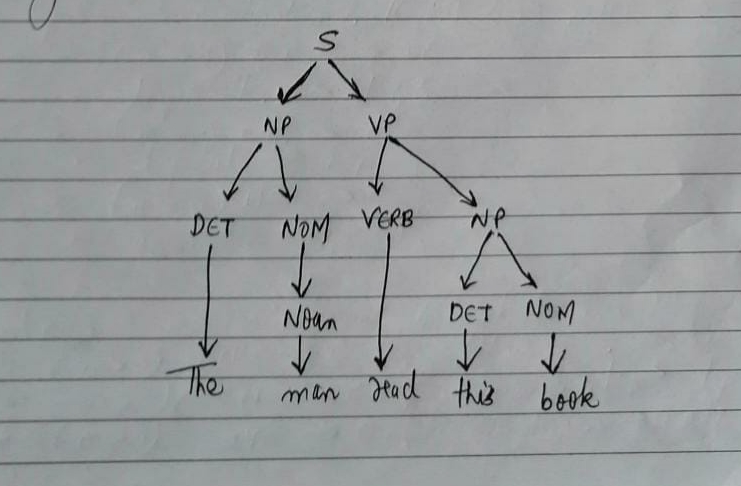 S
NP VP
DET NOM VERB NP
Noun DET NOM
The man read this book